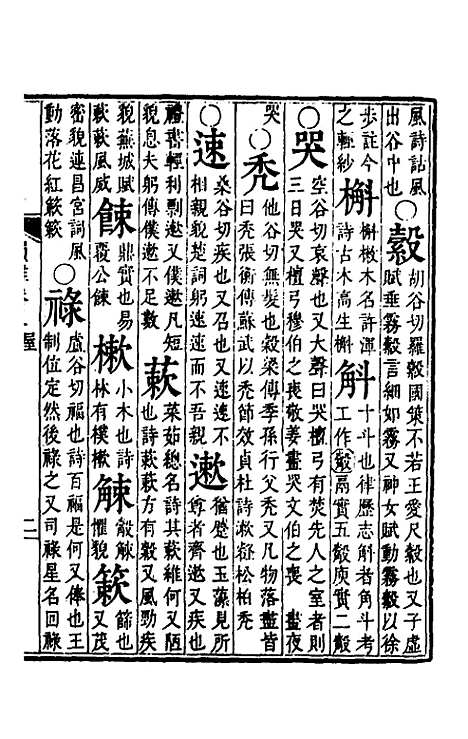 風詩詁風
出谷中也
○縠
胡谷切羅縠國策不若王愛尺縠也又子虛
賦垂霧縠言細如霧又神女賦動霧縠以徐
步註今
之輕紗
槲
槲樕木名許渾
詩古木高生槲
斛
十斗也律歷志斛者角斗考
工作㲄鬲實五㲄庾實二㲄
○哭
空谷切哀聲也又大聲曰哭檀弓有焚先人之室者則
三日哭又檀弓穆伯之喪敬姜晝哭文伯之喪晝夜
哭
○禿
他谷切無髮也穀梁傳季孫行父禿又凡物落盡皆
曰禿張衡傳蘇武以禿節效貞杜詩漱壑松柏禿
○速
桑谷切疾也又召也又速速不
相親貌楚詞躬速速而不吾親
遬
猶蹙也玉藻見所
尊者齊遬又疾也
禮書輕利剽遬又僕遬凡短
貌息夫躬傳僕遬不足數
蔌
菜茹總名詩其蔌維何又陋
也詩蔌蔌方有穀又風勁疾
貌蕪城賦
蔌蔌風威
餗
鼎實也易
覆公餗
樕
小木也詩
林有樸樕
觫
觳觫
懼貌
簌
篩也
又茂
密貌連昌宮詞風
動落花紅簌簌
○祿
盧谷切福也詩百祿是何又俸也王
制位定然後祿之又司祿星名回祿
二